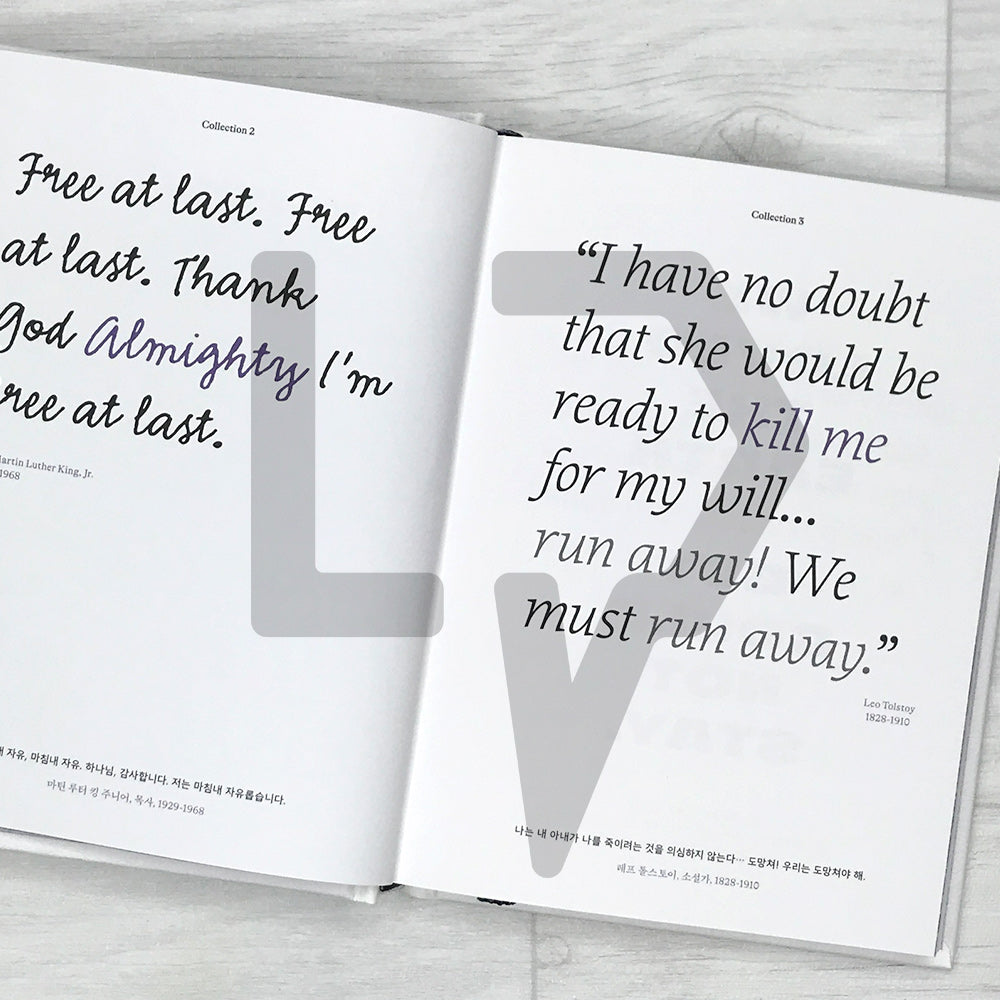 Collection 2
Free at last. Free
at last. Thank
God Almighty I'm
ree at last.
artin Luther King, Jr.
1968
자유, 마침내 자유. 하나님, 감사합니다. 저는 마침내 자유롭습니다.
마틴 루터 킹 주니어, 목사, 1929-1968
Collection 3
“I have no doubt
that she would be
ready to kill me
for my will...
run away! We
must run away.”
Leo Tolstoy
1828-1910
나는 내 아내가 나를 죽이려는 것을 의심하지 않는다… 도망쳐! 우리는 도망쳐야 해.
레프 톨스토이, 소설가, 1828-1910